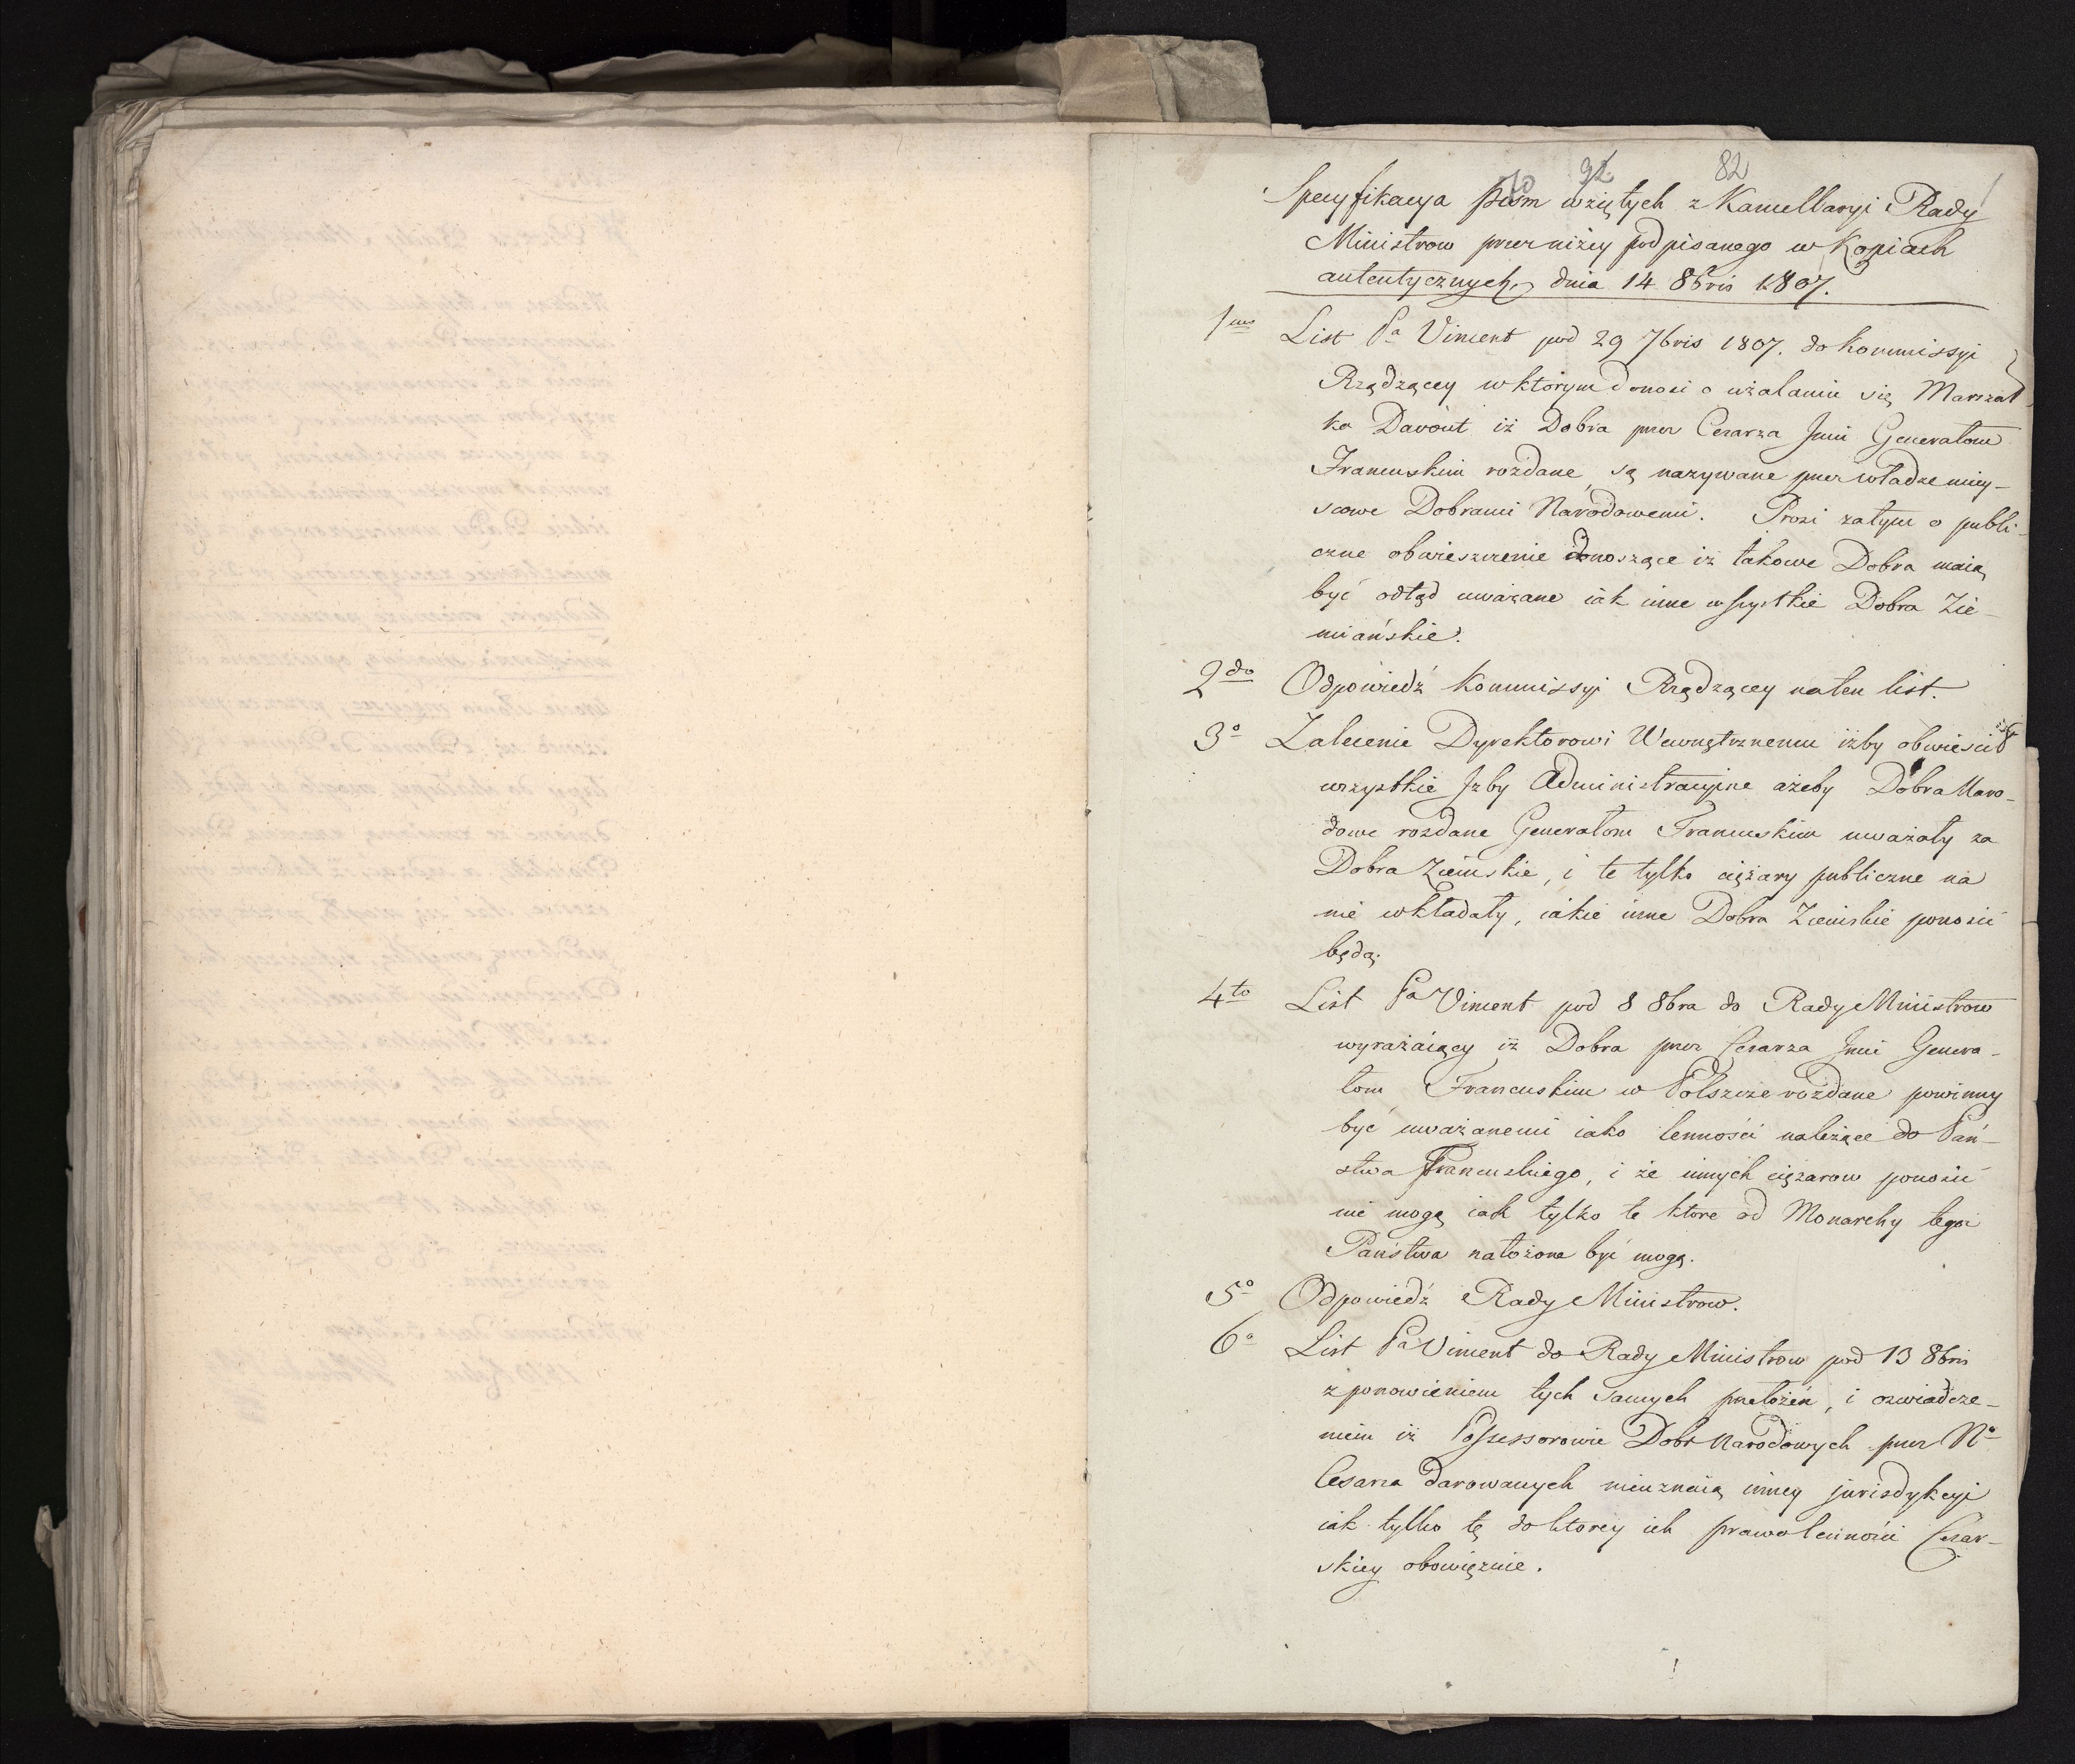 92 82
Specyfikacya pism wziętych z Kancellaryi Rady
Ministrow przez niżey podpisanego w Kopiach
autentycznych, dnia 14 8bris 1807.
1mo List Pa Vincent pod 29 7bris 1807. do Kommissyi
Rządzącey w którym donosi o użalaniu się Marszał
ka Davout iż Dobra przez Cesarza Jmci Generałom
Francuskim rozdane, są nazywane przez władze miey-
scowe Dobrami Narodowemi. Prosi zatym o publi-
czne obwieszczenie donoszące iż takowe Dobra maią
być odtąd uważane iak inne wszystkie Dobra Zie-
miańskie.
2do Odpowiedź Kommissyi Rządzącey na ten list.
3o Zalecenie Dyrektorowi Wewnętrznemu iżby obwieścił
wszystkie Izby Administracyine ażeby Dobra Naro-
dowe rozdane Generałom Francuskim uważały za
Dobra Ziemskie, i te tylko ciężary publiczne na
nie wkładały, iakie inne Dobra Ziemskie ponosić
będą.
4to List Pa Vincent pod 8 8bra do Rady Ministrow
wyrażaiący iż Dobra przez Cesarza Jmci Genera-
łom Francuskim w Polszcze rozdane powinny
być uważanemi iako lenności należące do Pań-
stwa Francuskiego, i że innych ciężarow ponosić
nie mogą iak tylko te ktore od Monarchy tegoż
Państwa nałożone być mogą.
5o Odpowiedź Rady Ministrow.
6o List Pa Vincent do Rady Ministrow pod 13 8bris
z ponowieniem tych samych przełożeń, i oświadcze-
niem iż Possessorowie Dobr Narodowych przez No
Cesarza darowanych nieuznaią inney jurisdykcyi
iak tylko tę do ktorey ich prawo lenności Cesar-
skiey obowięzuie.